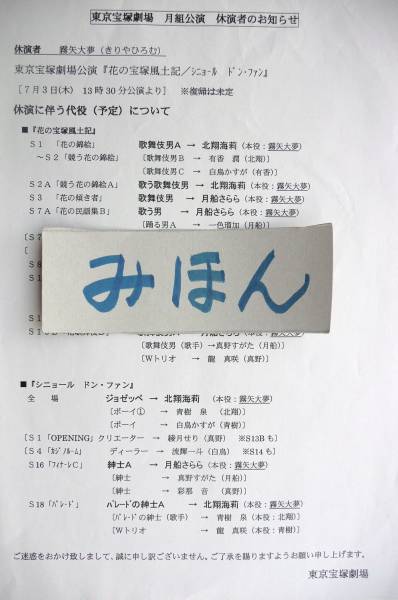 東京宝塚劇場 月組公演 休演者のお知らせ
休演者 霧矢大夢(きりやひろむ)
東京宝塚劇場公演『花の宝塚風土記/シニョール ドン・ファン』
[7月3日(木) 13時30分公演より] ※復帰は未定
休演に伴う代役(予定)について
■『花の宝塚風土記』
S1 「花の錦絵」 歌舞伎男A → 北翔海莉(本役:霧矢大夢)
~S2「競う花の錦絵」 [歌舞伎男B → 有香 潤(北翔)]
[歌舞伎男C → 白鳥かすが(有香)]
S2A「競う花の錦絵A」 歌う歌舞伎男 → 北翔海莉(本役:霧矢大夢)
S3 「花の傾き者」 歌舞伎男 → 月船さらら(本役:霧矢大夢)
S7A「花の民謡集B」 歌う男 → 月船さらら(本役:霧矢大夢)
[踊る男A → 一色瑠加(月船)]
みほん
[歌舞伎男(歌手)→真野すがた(月船)]
[Wトリオ → 龍 真咲(真野)]
■『シニョール ドン・ファン』
全 場 ジョゼッペ → 北翔海莉 (本役:霧矢大夢)
[ボーイ① → 青樹 泉 (北翔)]
[ボーイ → 白鳥かすが(青樹)]
[S1「OPENING」クリエーター → 綾月せり(真野) ※S13Bも]
[S4「カジノルーム」 ディーラー → 流輝一斗(白鳥) ※S14も]
S16「フィナーレC」 紳士A → 月船さらら (本役:霧矢大夢)
[紳士 → 真野すがた(月船)]
[紳士 → 彩那 音 (真野)]
S18「パレード」 パレードの紳士A → 北翔海莉 (本役:霧矢大夢)
[パレードの紳士(歌手) → 青樹 泉(本役:北翔)]
[Wトリオ → 龍 真咲(本役:青樹)]
ご迷惑をおかけ致しまして、誠に申し訳ございません。ご了承を賜りますようお願い申し上げます。
東京宝塚劇場